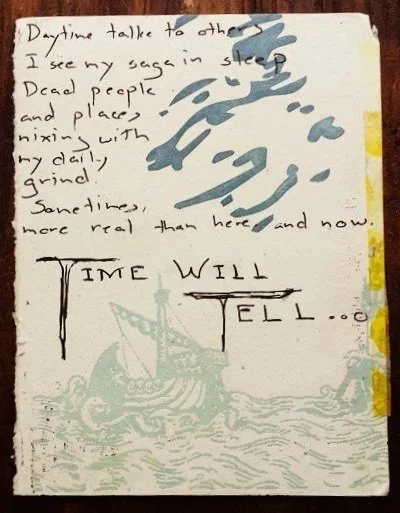 Daytime talks to others
I see my saga in sleep
Dead people
and places
mixing with
my daily
grind.
Sometimes,
more real than here and now.
TIME WILL
TELL...